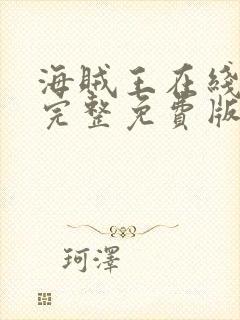 海贼王在线
完整免費版
珂澤